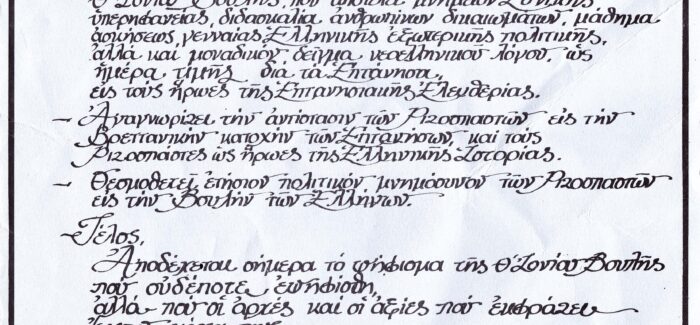 Θ΄ Ἰονίου Βουλῆς, που ἀποτελεῖ μνημεῖον Ἐθνικῆς
ὑπερηφανείας, διδασκαλία ἀνθρωπίνων δικαιωμάτων, μάθημα
ἀσκήσεως γενναίας Ἑλληνικῆς ἐξωτερικῆς πολιτικῆς,
ἀλλά και μοναδικόν δεῖγμα νεοελληνικοῦ λόγου, ὡς
ἡμέρα τιμῆς δια τα Ἑπτάνησα,
εἰς τούς ἥρωες τῆς Ἑπτανησιακῆς Ἐλευθερίας.
– Ἀναγνωρίζει τήν ἀντίστασιν τῶν Ριζοσπαστῶν εἰς τήν
Βρεττανικήν κατοχήν τῶν Ἑπτανήσων, καί τούς
Ριζοσπάστες ὡς ἥρωες τῆς Ἑλληνικῆς Ἱστορίας.
– Θεσμοθετεῖ ἐτήσιον πολιτικόν μνημόσυνον τῶν Ριζοσπαστῶν
εἰς τήν Βουλήν τῶν Ἑλλήνων.
– Τέλος,
Ἀποδέχεται σήμερα τό ψήφισμα τῆς Θ΄ Ἰονίου Βουλῆς
πού οὐδέποτε ἐψηφίσθη,
ἀλλά πού οἱ ἀρχές καί οἱ ἀξίες πού ἐκφράζει